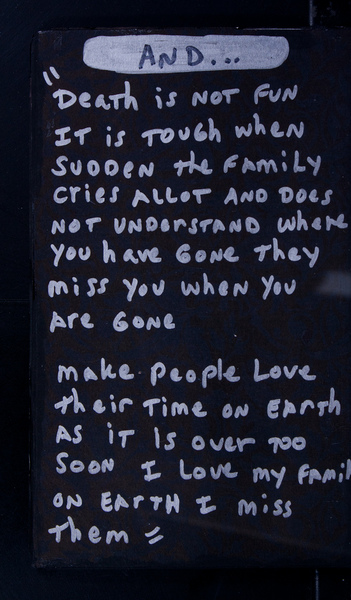 AND...
"Death is NOT FUN
IT is TOUGH WHEN
SUDDEN the FAMILY
CRIES ALLOT AND DOES
NOT UNDERSTAND WHERE
YOU HAVE GONE THEY
MISS YOU WHEN YOU
ARE GONE
MAKE PEOPLE LOVE
their TIME ON EARTH
AS IT IS OVER TOO
SOON I LOVE MY FAMIL
ON EARTH I MISS
them "